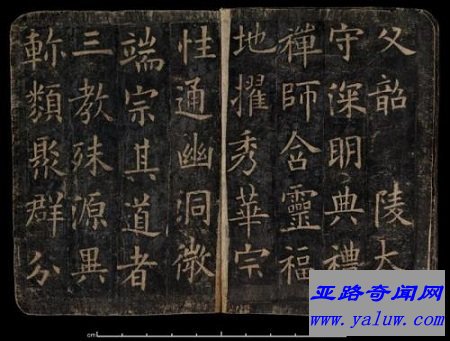 父韶 陵太
守深明典禮
禪師含靈福
地擢秀華宗
性通幽洞微
端宗其道者
三教殊源異
軫類聚群分
亚路奇闻网
www.yaluw.com
cm